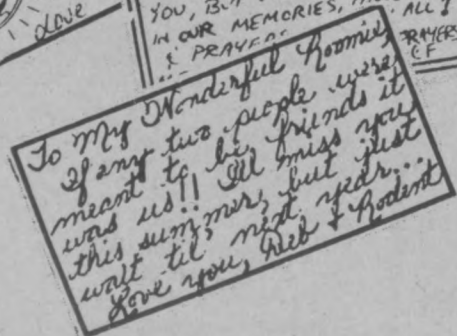 Love
YOU, BUT
IN OUR MEMORIES,
ALL
& PRAYERS
PRAYERS
CF
To My Wonderful Roomie,
If any two people were
meant to be friends it
was us!! I'll miss you
this summer, but just
wait til' next year...
Love you, Deb & Rodent